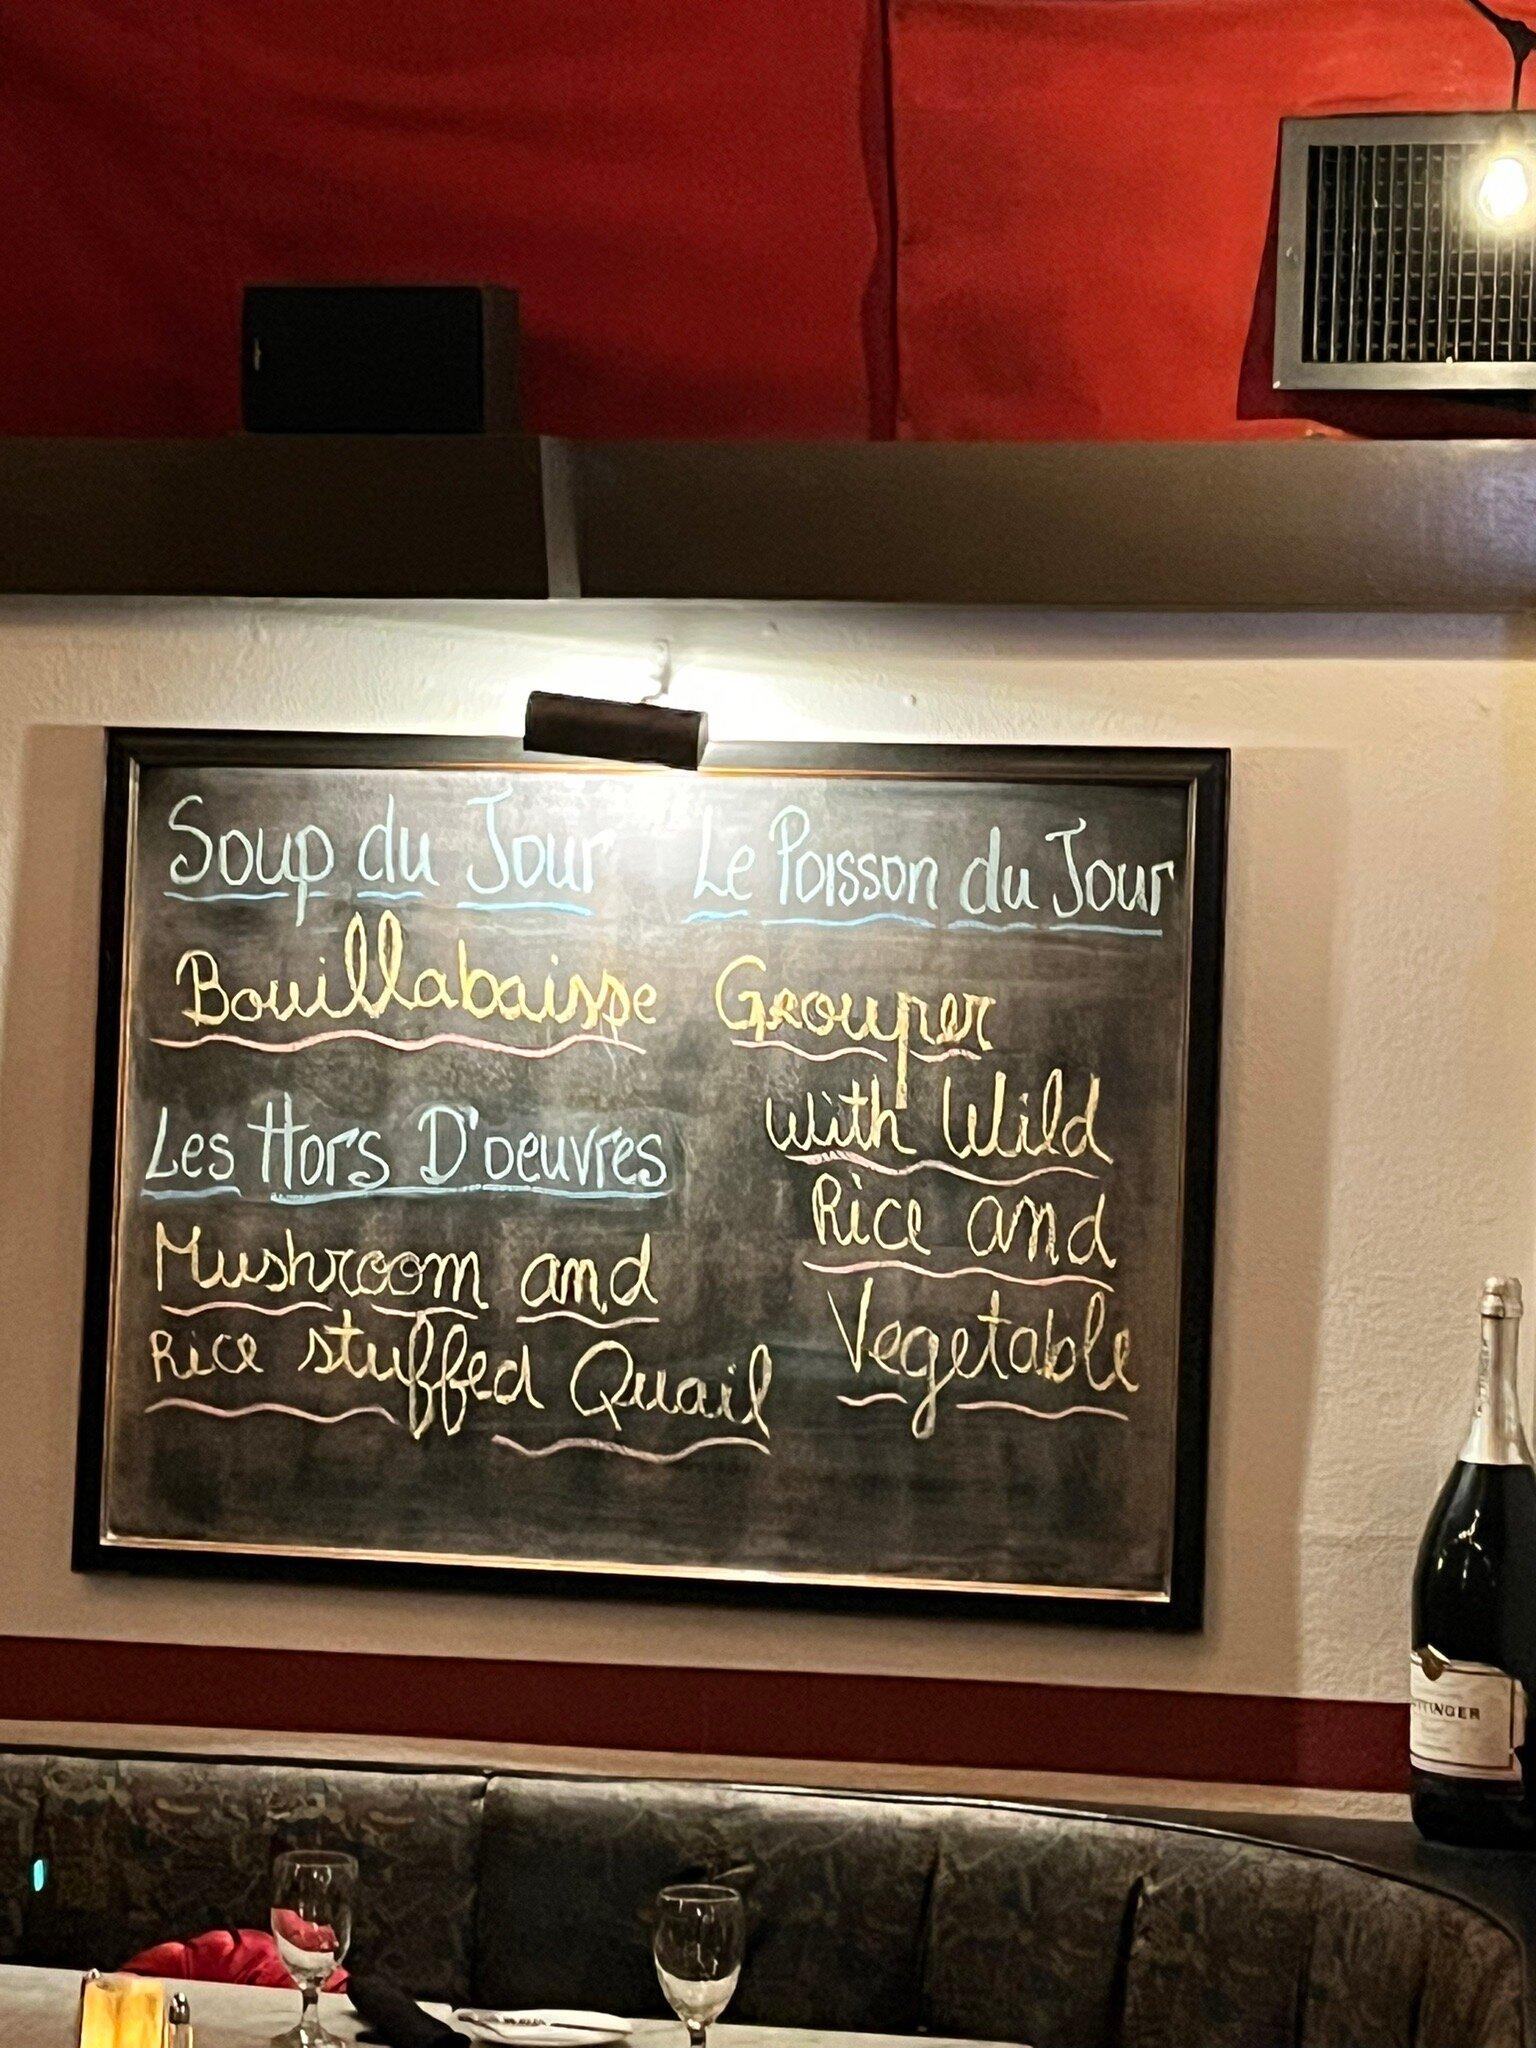 Soup du Jour
Bouillabaisse
Les Hors D'oeuvres
Mushroom and
Rice stuffed Quail
Le Poisson du Jour
Grouper
with Wild
Rice and
Vegetable